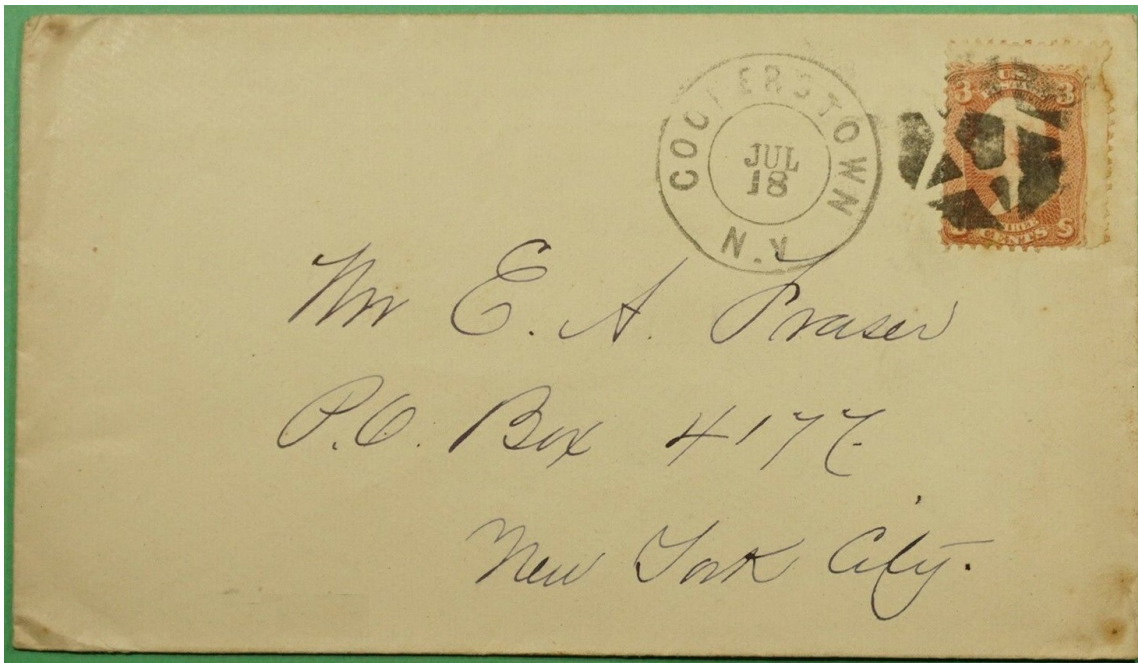 COOPERSTOWN
JUL
18
N.Y.
3 U.S. 3
POSTAGE
THREE
CENTS
Mr E. A. Fraser
P.O. Box 4177.
New York City.